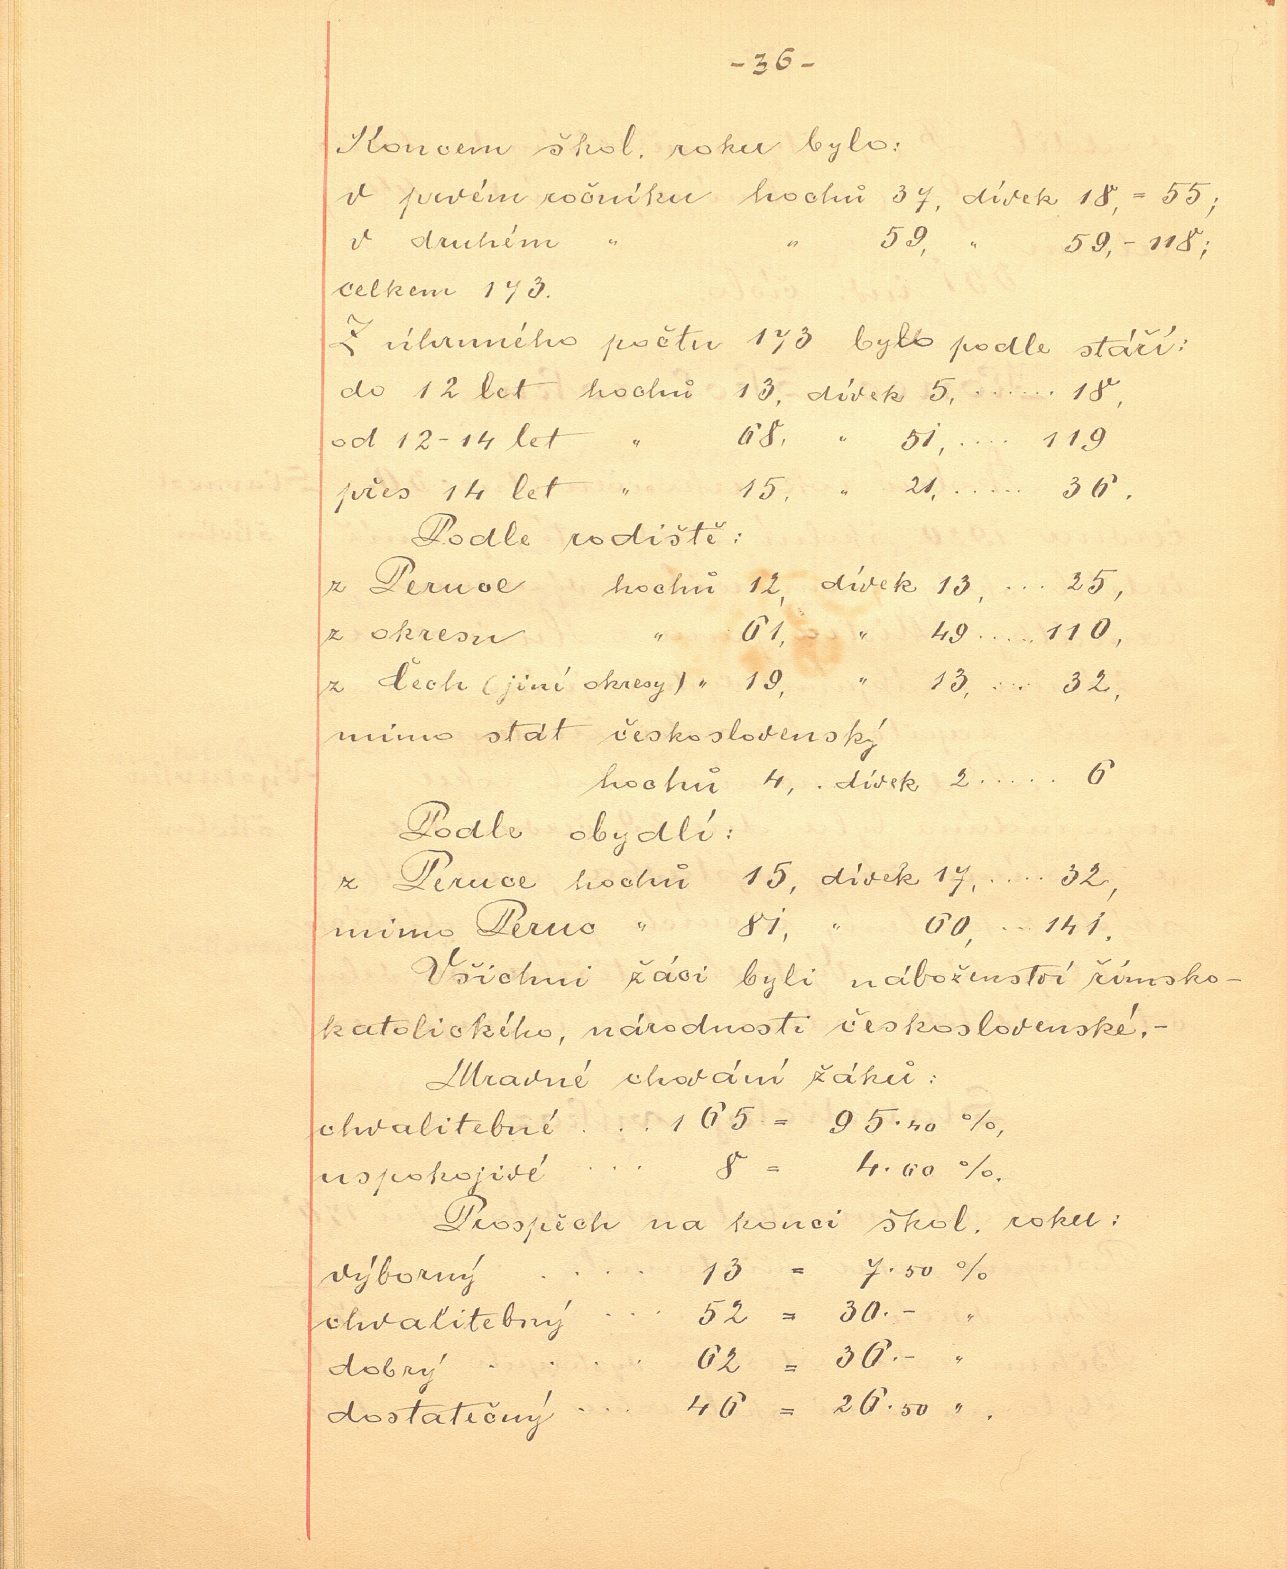 -36-
Koncem škol. roku bylo:
v prvém ročníku hochů 37, dívek 18, = 55;
v druhém " " 59, " 59, - 118;
celkem 173.
Z úhrnného počtu 173 bylo podle stáří:
do 12 let hochů 13, dívek 5, ...... 18,
od 12-14 let " 68, " 51, .... 119
přes 14 let " 15, " 21, ..... 36.
Podle rodiště:
z Peruce hochů 12, dívek 13, ... 25,
z okresu " 61, " 49 ..... 110,
z Čech (jiní okresy) " 19, " 13, ... 32,
mimo stát československý
hochů 4, . dívek 2 ..... 6
Podle obydlí:
z Peruce hochů 15, dívek 17, .... 32,
mimo Peruc " 81, " 60, ... 141.
Všichni žáci byli náboženství římsko-
katolického, národnosti československé.-
Mravné chování žáků:
chvalitebné . . . 165 = 95.40 %,
uspokojivé ... 8 = 4.60 %.
Prospěch na konci škol. roku:
výborný . . . . 13 = 7.50 %
chvalitebný ... 52 = 30.- "
dobrý . . . . 62 = 36.- "
dostatečný ... 46 = 26.50 " .